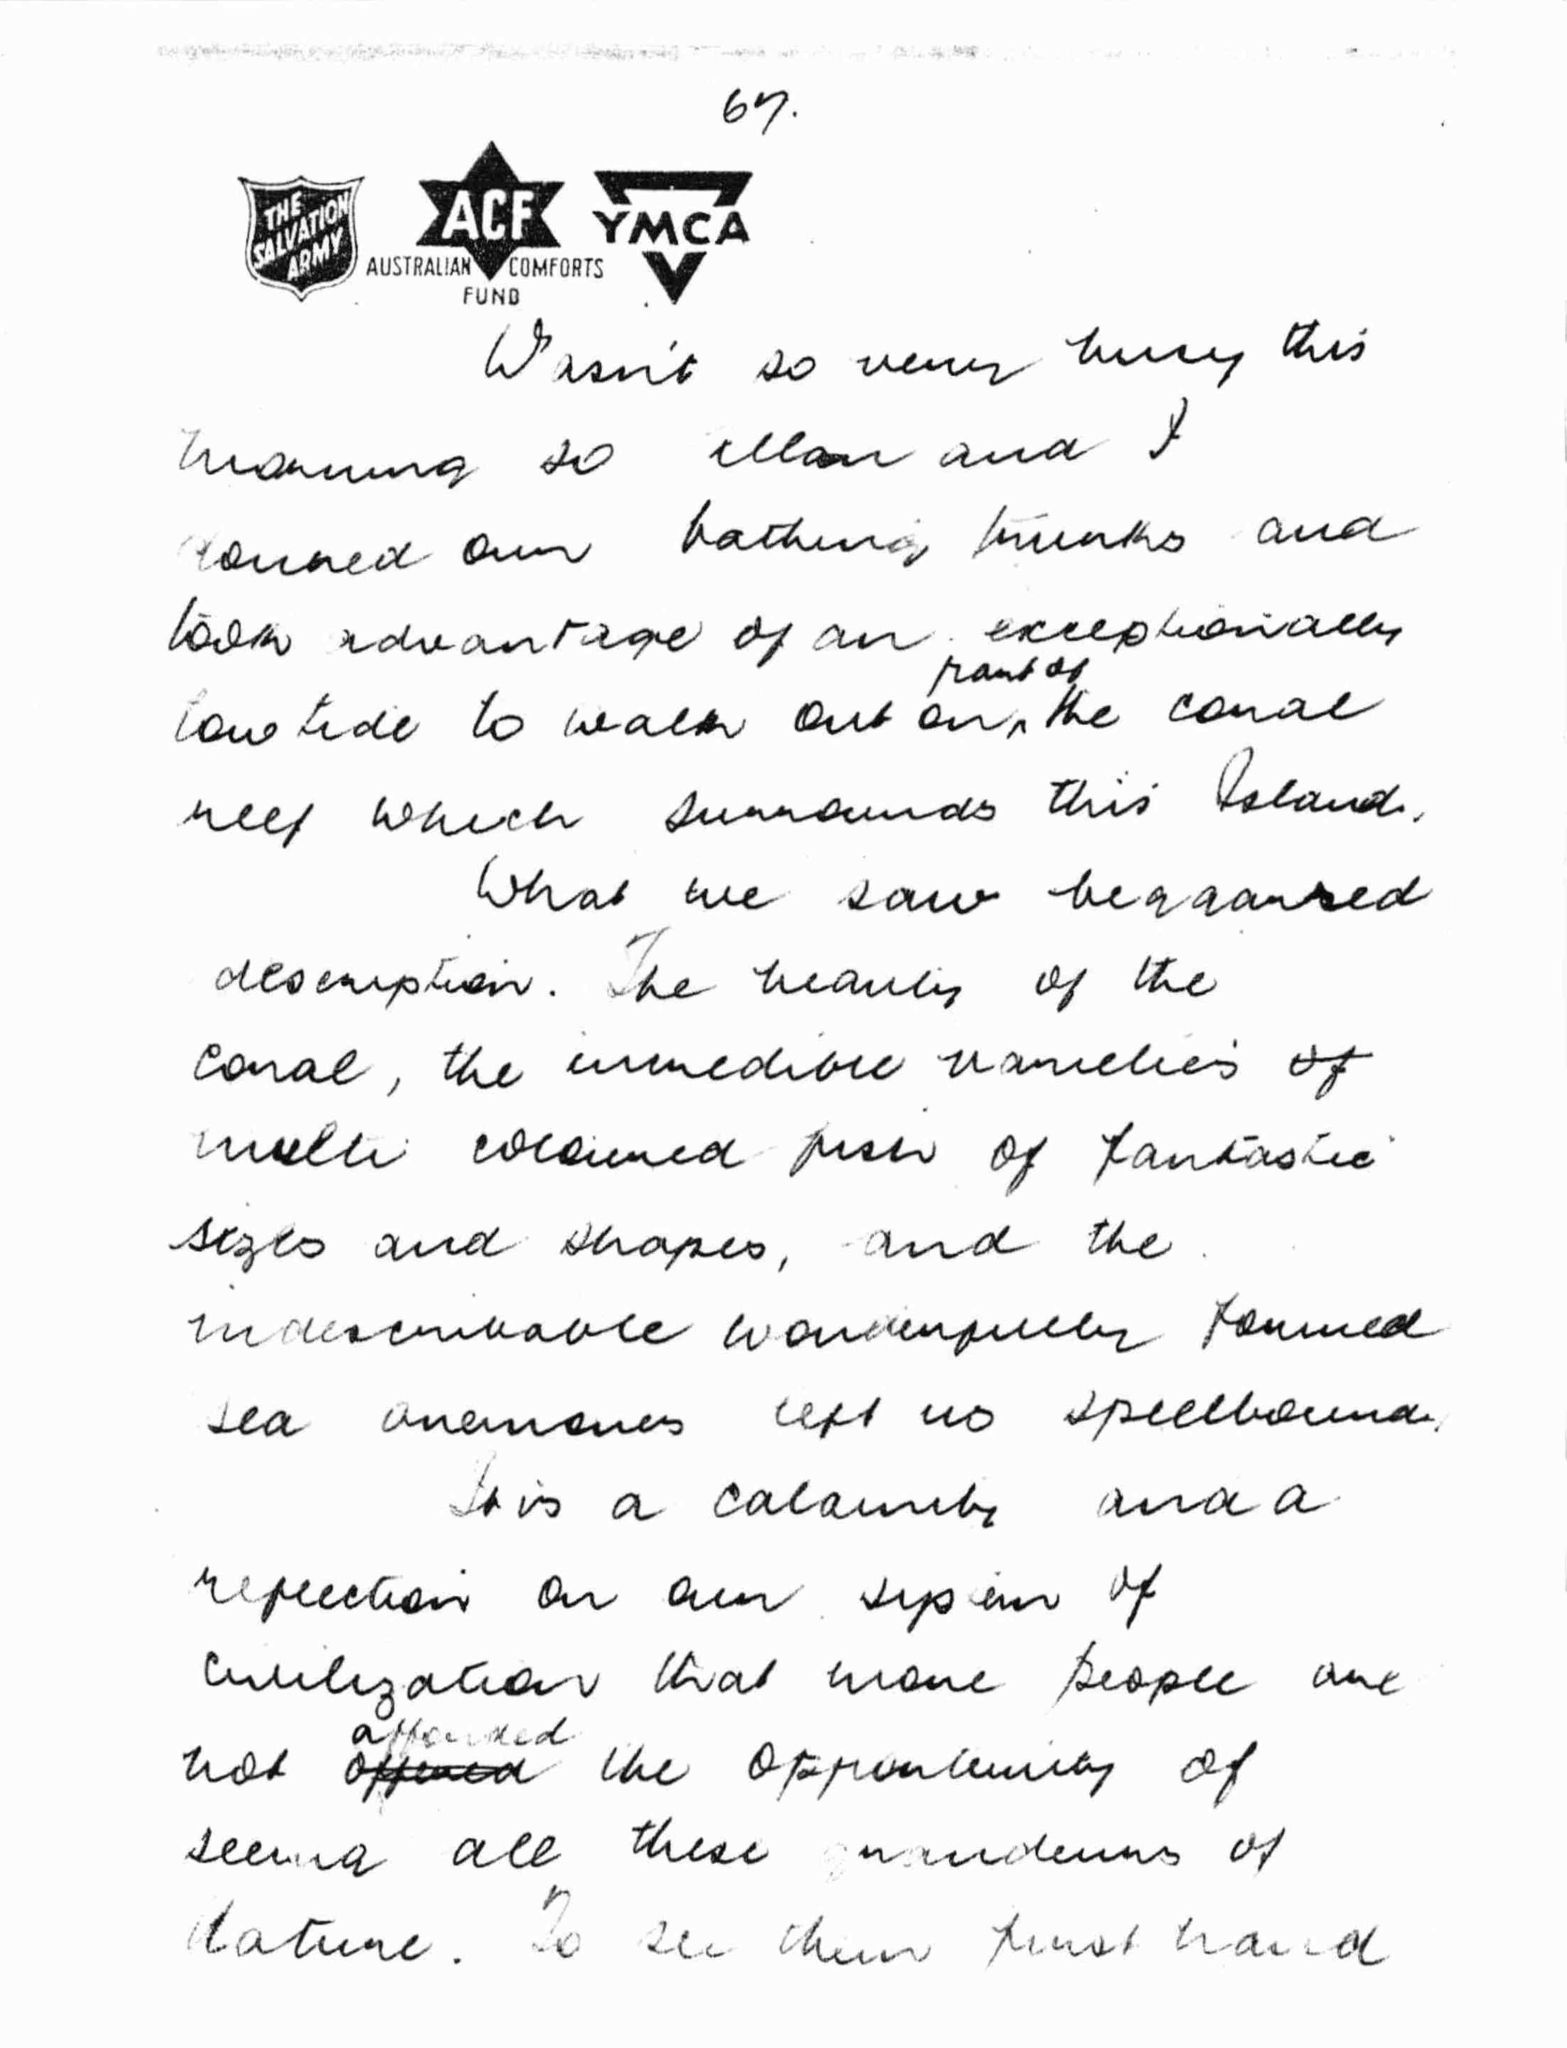 67.
THE
SALVATION
ARMY
ACF
AUSTRALIAN COMFORTS
FUND
YMCA
Wasn't so very busy this
morning so Allan and I
donned our bathing trunks and
took advantage of an exceptionally
low tide to walk out on part of the coral
reef which surrounds this Island.
What we saw beggared
description. The beauty of the
coral, the incredible varieties of
multi coloured fish of fantastic
sizes and shapes, and the
indescribable wonderfully formed
sea anemones left us spellbound.
It is a calamity and a
reflection on our system of
civilization that more people are
not offered afforded the opportunity of
seeing all these grandeurs of
Nature. To see them first hand